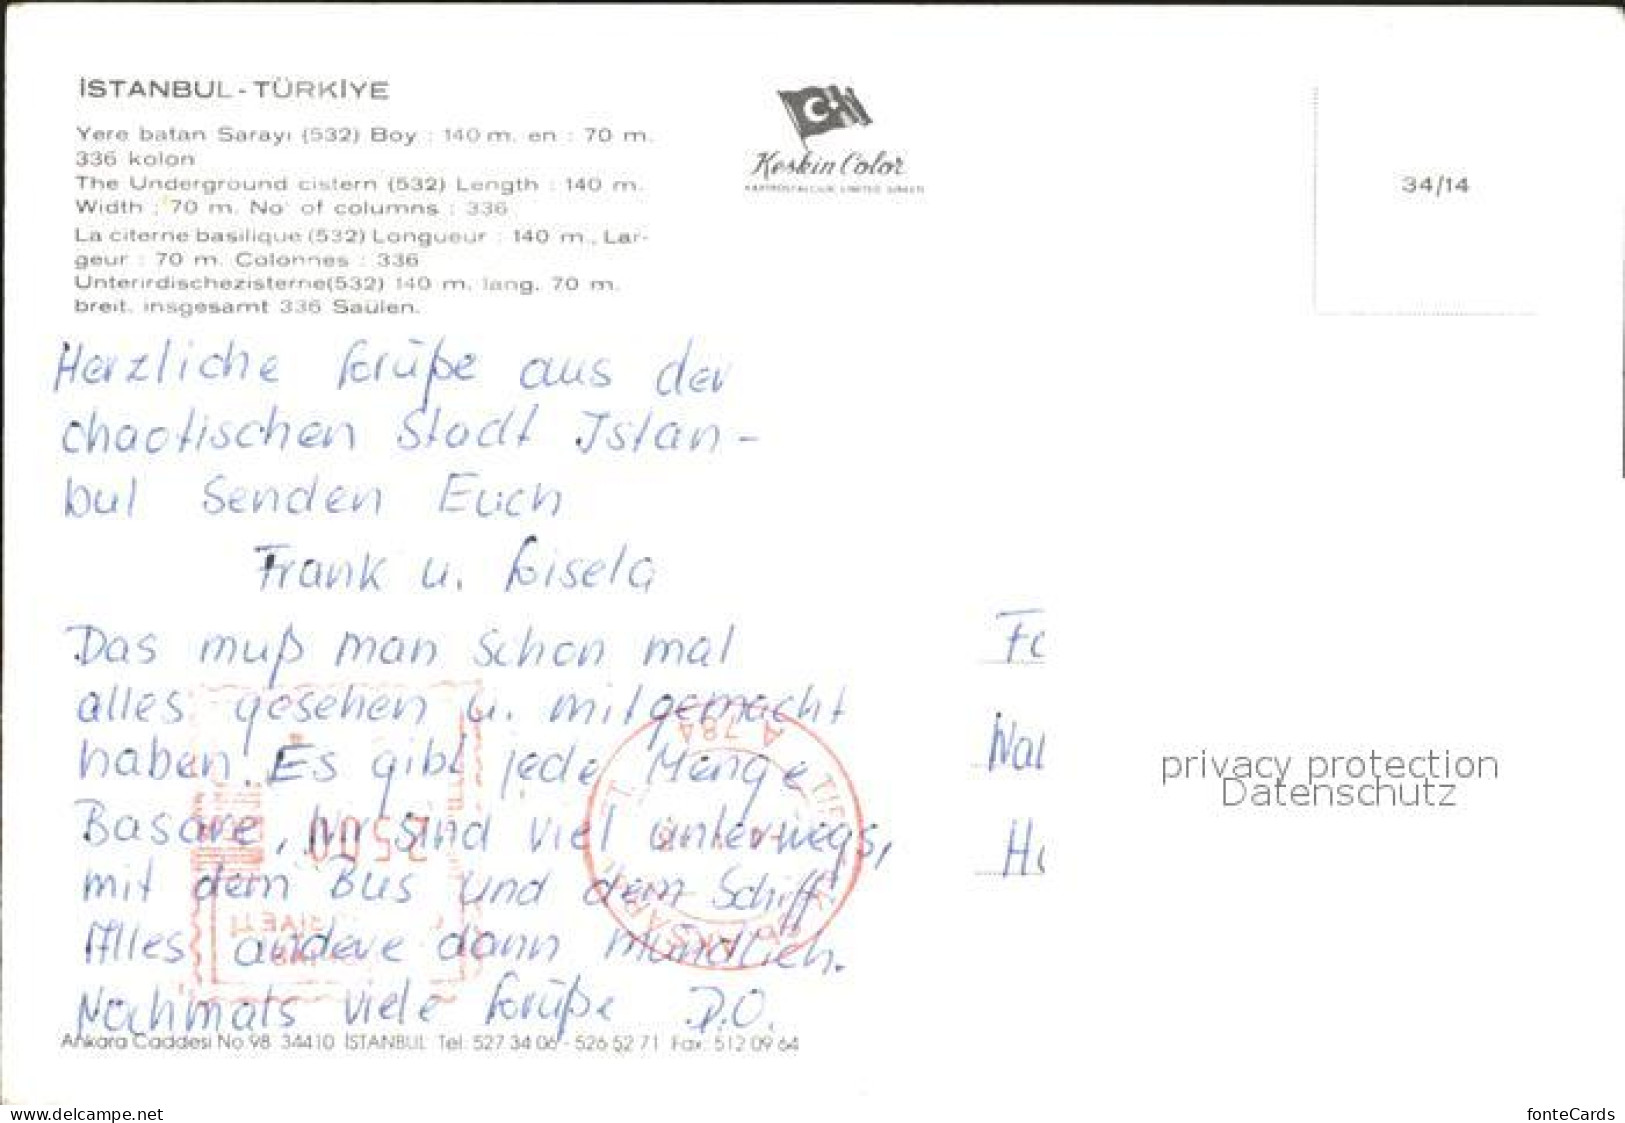 İSTANBUL - TÜRKİYE
Yere batan Sarayı (532) Boy : 140 m. en : 70 m.
336 kolon
The Underground cistern (532) Length : 140 m.
Width : 70 m. No' of columns : 336
La citerne basilique (532) Longueur : 140 m., Lar-
geur : 70 m. Colonnes : 336
Unterirdischezisterne(532) 140 m. lang. 70 m.
breit. insgesamt 336 Saülen.
Keskin Color
KARTPOSTALCILIK LIMITED ŞIRKETI
34/14
Herzliche Grüße aus der
chaotischen Stadt Istan-
bul senden Euch
Frank u. Gisela
Das muß man schon mal
alles gesehen u. mitgemacht
haben. Es gibt jede Menge
Basare, wir sind viel unterwegs,
mit dem Bus und dem Schiff.
Alles andere dann mündlich.
Nochmals viele Grüße D.O.
A 784
2500
Fa
Wal
Ha
privacy protection
Datenschutz
Ankara Caddesi No 98 34410 İSTANBUL Tel: 527 34 06 - 526 52 71 Fax: 512 09 64
www.delcampe.net
fonteCards